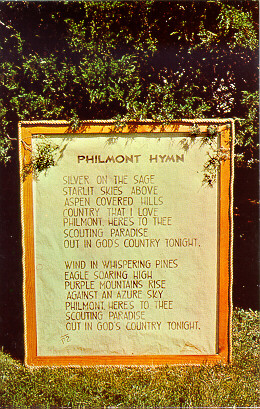 PHILMONT HYMN
SILVER ON THE SAGE
STARLIT SKIES ABOVE
ASPEN COVERED HILLS
COUNTRY THAT I LOVE
PHILMONT, HERE'S TO THEE
SCOUTING PARADISE
OUT IN GOD'S COUNTRY TONIGHT.
WIND IN WHISPERING PINES
EAGLE SOARING HIGH
PURPLE MOUNTAINS RISE
AGAINST AN AZURE SKY
PHILMONT, HERE'S TO THEE
SCOUTING PARADISE
OUT IN GOD'S COUNTRY TONIGHT.